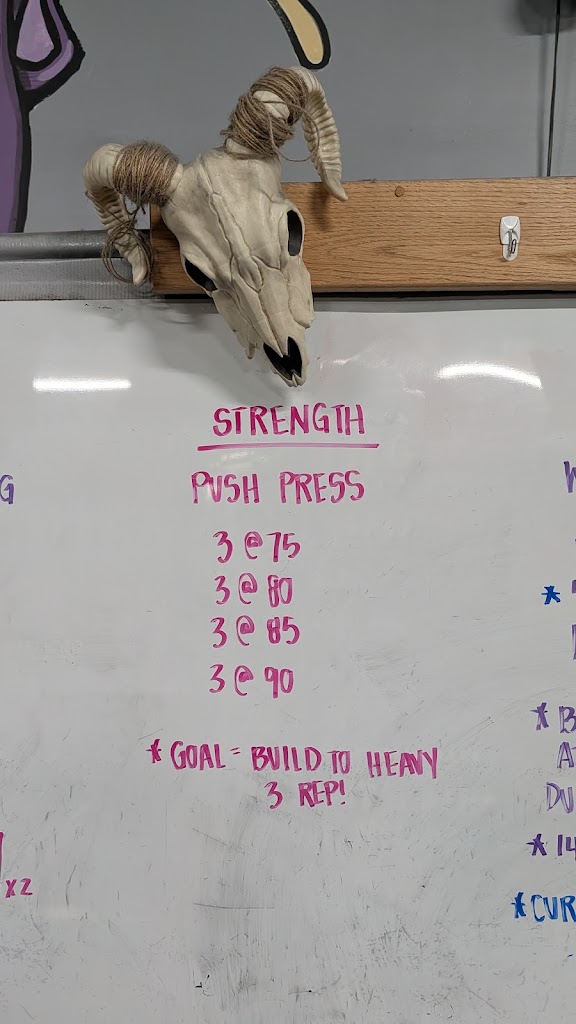 STRENGTH
PUSH PRESS
3 @ 75
3 @ 80
3 @ 85
3 @ 90
* GOAL = BUILD TO HEAVY
3 REP!
G
x2
*
* B
A
DU
* 14
* CUR